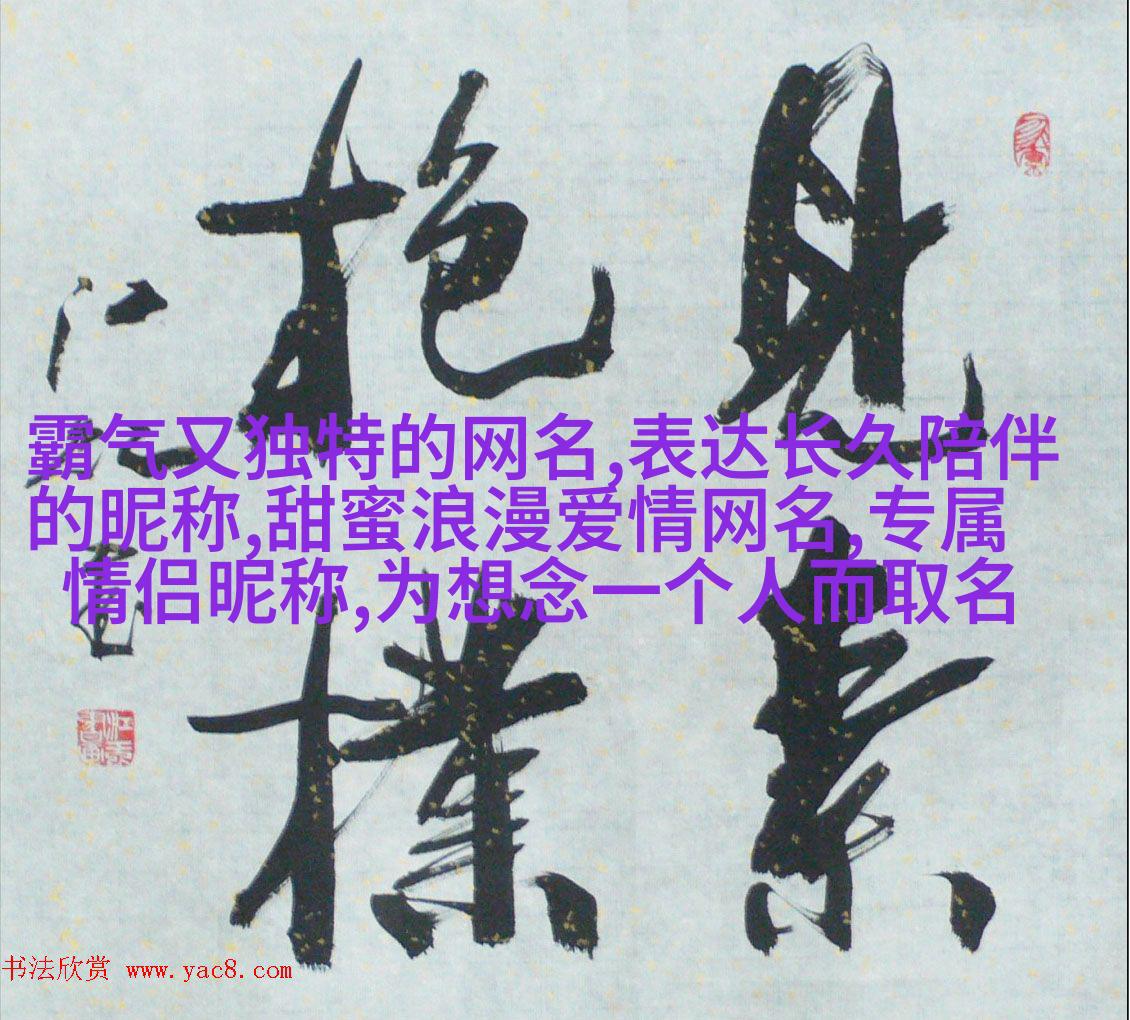 見素
抱樸
霸气又独特的网名,表达长久陪伴
的昵称,甜蜜浪漫爱情网名,专属
情侣昵称,为想念一个人而取名
书法欣赏 www.yac8.com